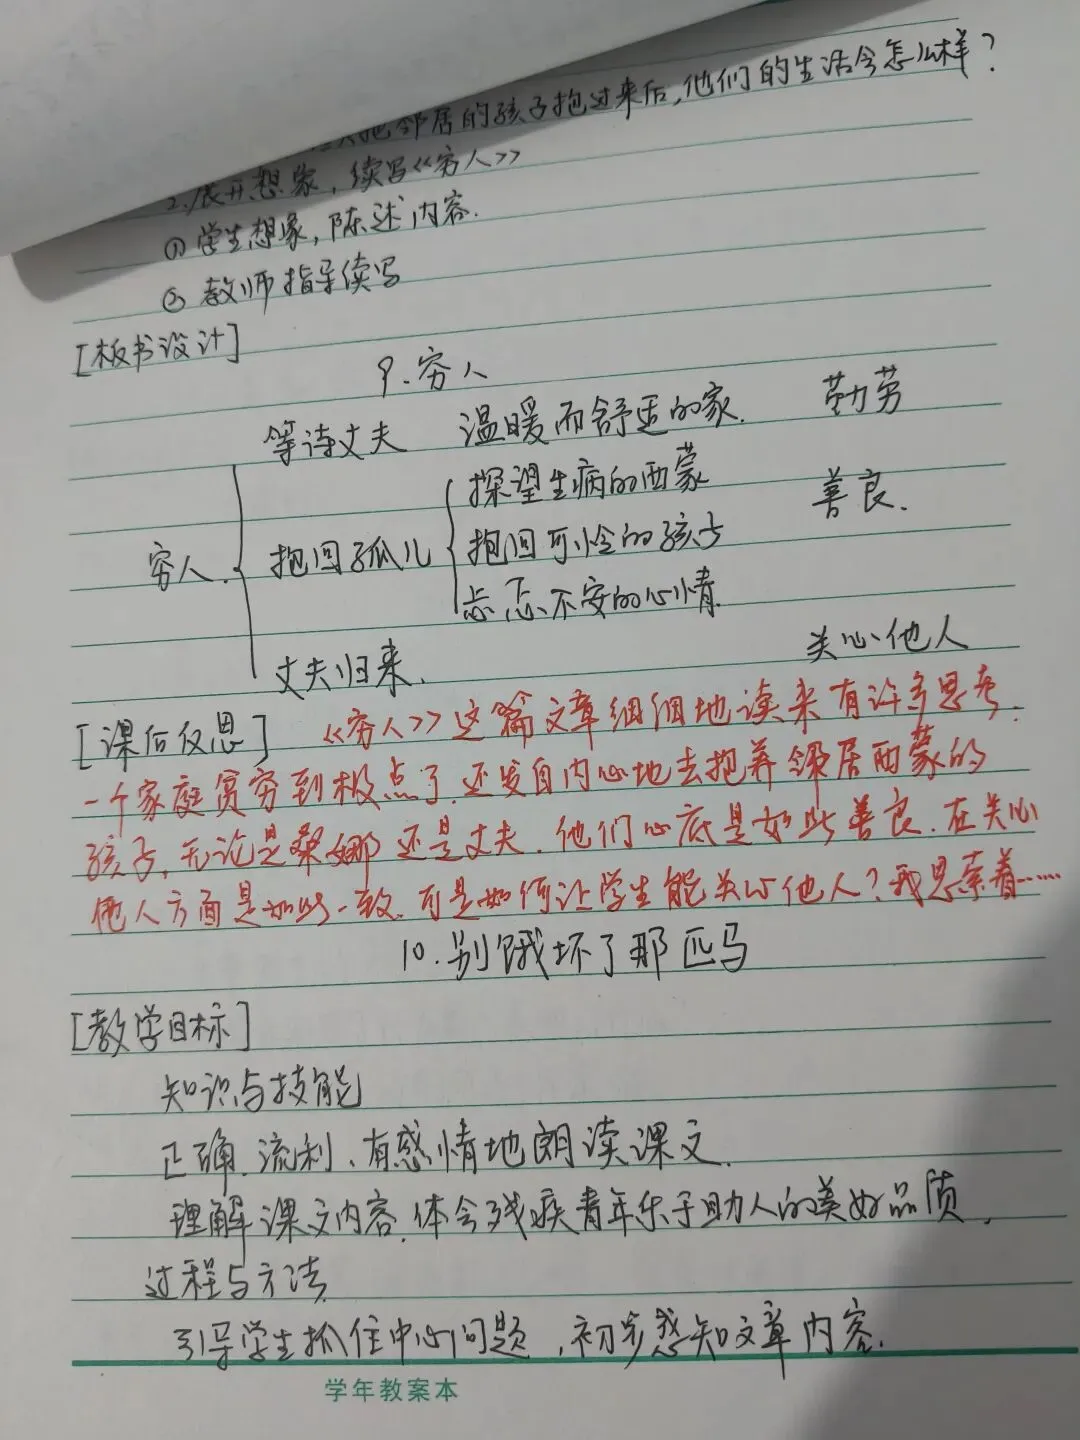 把邻居的孩子抱过来后,他们的生活会怎么样?
2.展开想象,续写《穷人》
①学生想象,陈述内容.
②教师指导续写
[板书设计]
9.穷人
等待丈夫 温暖而舒适的家. 勤劳
探望生病的西蒙 善良.
穷人. 抱回孤儿 抱回可怜的孩子
忐忑不安的心情.
丈夫归来. 关心他人
[课后反思] 《穷人》这篇文章细细地读来有许多思考.
一个家庭贫穷到极点了.还发自内心地去抱养邻居西蒙的
孩子,无论是桑娜还是丈夫.他们心底是如此善良.在关心
他人方面是如此一致.可是如何让学生能关心他人?我思索着……
10.别饿坏了那匹马
[教学目标]
知识与技能
正确.流利、有感情地朗读课文.
理解课文内容.体会残疾青年乐于助人的美好品质.
过程与方法
引导学生抓住中心问题,初步感知文章内容.
学年教案本